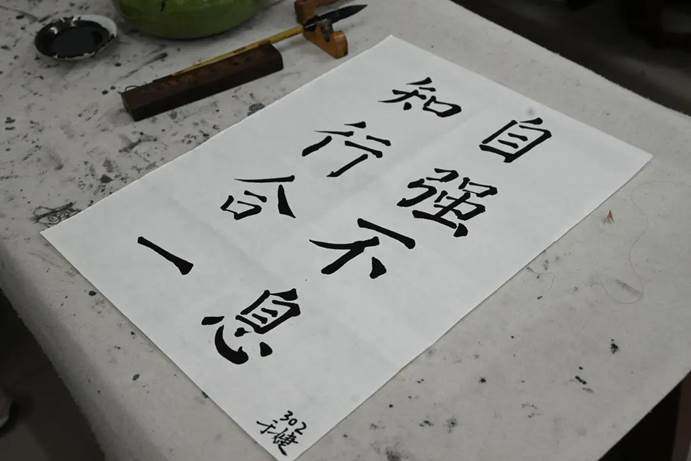 自强不息
知行合一
302
于婕